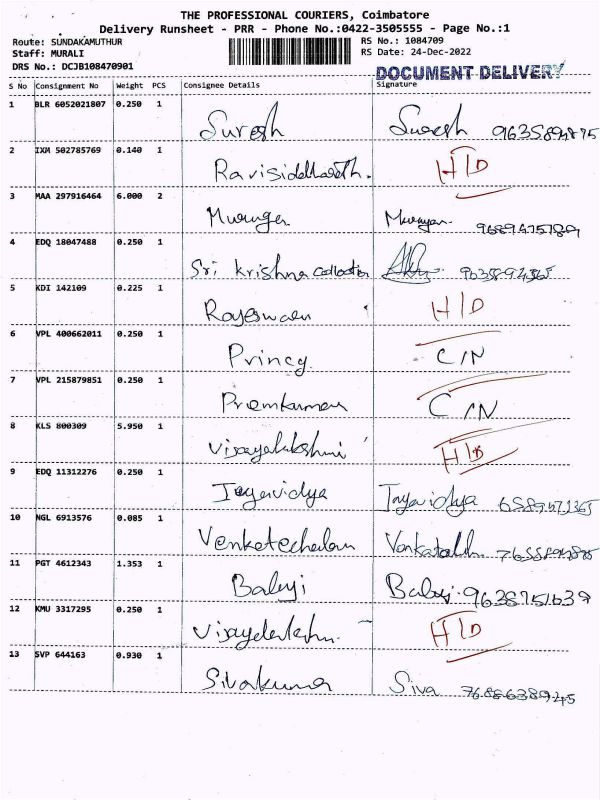 THE PROFESSIONAL COURIERS, Coimbatore
Delivery Runsheet - PRR - Phone No.:0422-3505555 - Page No.:1
Route: SUNDAKAMUTHUR RS No.: 1084709
Staff: MURALI RS Date: 24-Dec-2022
DRS No.: DCJB108470901 DOCUMENT DELIVERY
S No Consignment No Weight PCS Consignee Details Signature
1 BLR 6052021807 0.250 1 Suresh Suresh
2 IXM 502785769 0.140 1 Ravisiddharth. H/D
3 MAA 297916464 6.000 2 Muruga Murugan
4 EDQ 18047488 0.250 1 Sri Krishna Collection
5 KDI 142109 0.225 1 Rajeswari H/D
6 VPL 400662011 0.250 1 Princy C/N
7 VPL 215879851 0.250 1 Premkumar C/N
8 KLS 800309 5.950 1 Vijayalakshmi H/D
9 EDQ 11312276 0.250 1 Jayavidya Jayavidya
10 NGL 6913576 0.085 1 Venketechalam
11 PGT 4612343 1.353 1 Balaji Balaji
12 KMU 3317295 0.250 1 H/D
13 SVP 644163 0.930 1 Sivakumar Siva